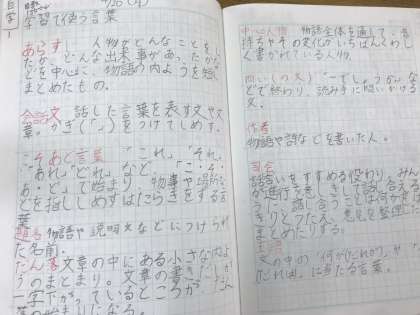 自学1
学習で使う言葉
あらすじ 人物がどんなことをし
たか、どんな出来事があったかな
どを中心に、物語の内ようを短く
まとめたもの。
会話文 話した言葉を表す文や文
章。かぎ(「」)をつけてしめす。
こそあど言葉 「これ」「それ」
「あれ」「どれ」など、「こ・そ・
あ・ど」で始まり、物事や場所な
どを指ししめすはたらきをする言
葉
題名 物語や説明文などにつけられ
た名前。
だん落 文章の中にある小さな内よ
うのまとまり。文章の書きだしが
一字下がっているところが、だん
落の始まりになる。
中心人物 物語全体を通して、気
持ちやその変化がいちばんくわし
く書かれている人物。
問い(の文)「〜でしょうか」な
どで終わり、読み手に問いかける
文。
作者
物語や詩などを書いた人。
司会
話し合いをすすめる役わり。みん
きりとつたえ、意見を整理し
まとめたりする。
主語
文の中の「何が(だれが)」や「
(だれは)」に当たる言葉。